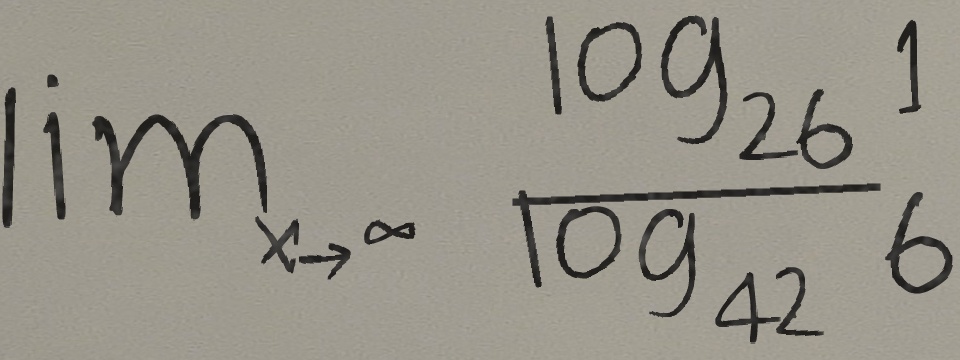 lim x→∞ log 26 1
log 42 6